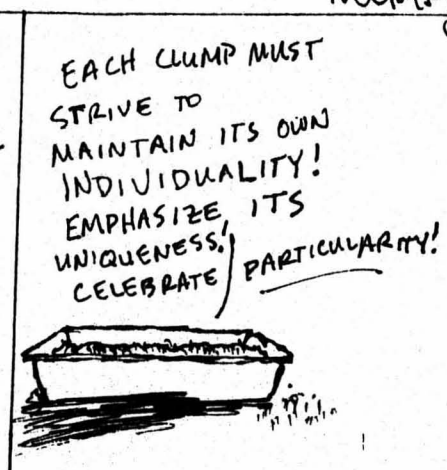 EACH CLUMP MUST
STRIVE TO
MAINTAIN ITS OWN
INDIVIDUALITY!
EMPHASIZE ITS
UNIQUENESS!
CELEBRATE PARTICULARITY!